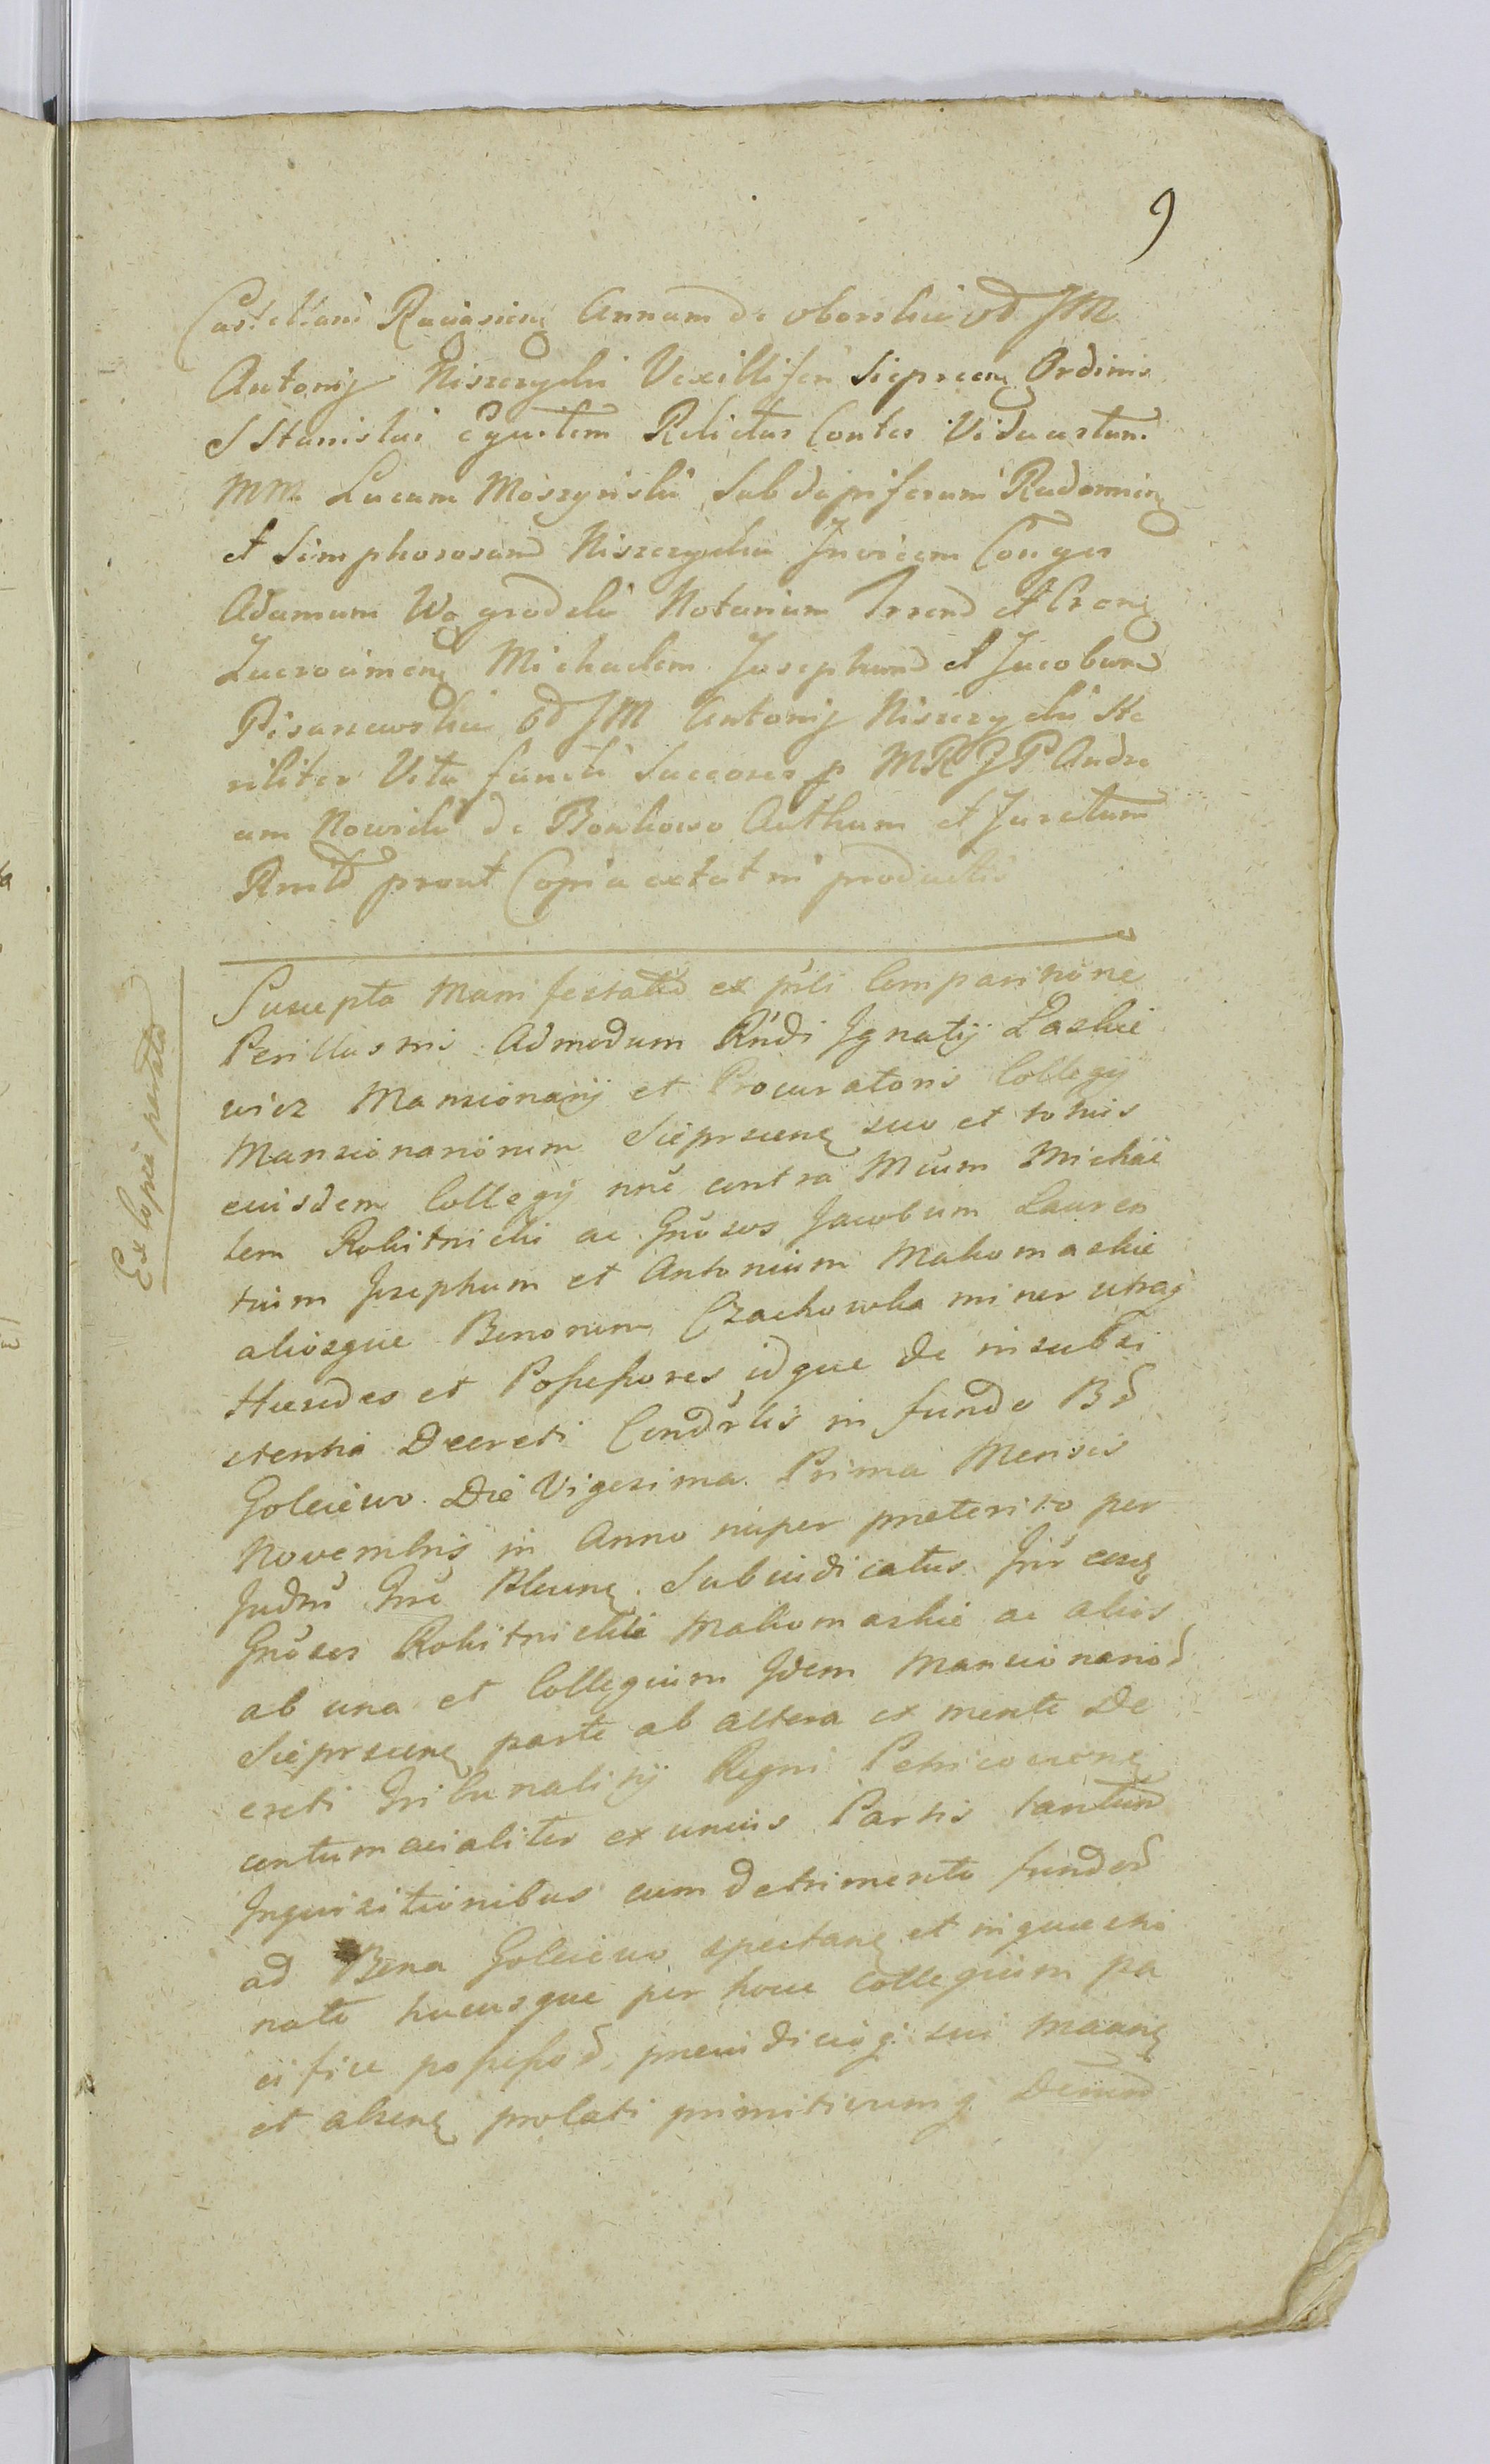 9
Castellani Raciąsien Annam de Oborskie od JM
Antonij Niszczycki Vexilliferi Sieprcen Ordinis
S Stanislai Equitem Relictus Contes Viduastam
MM Lucam Moszynski Subdapiferum Radomien
et Simphorosam Niszczyckie Invicem Conges
Adamum Wągrodzki Notarium Terrend et Cren
Zacrocimen Michaelem Josephum et Jacobum
Pisanewskie od JM Antonij Niszczycki ste
riliter Vita functi Succores p MRJP Andre
am Nowicki de Bonkowo Authum et Juretum
Rmttd prout Copia extat in productis
Ex Copia parata
Suscepta Manifestatio ex prli Comparitione
Perillustris Admodum Rndi Ignatij Laskie
wicz Mansionarij et Procuratoris Collegij
Mansionariorum Sieprscen suo et totius
eiusdem Collegij nne contra Mcum Michae
lem Rokitnicki ac Gnosos Jacobum Lauren
tium Josephum et Antonium Makomaskie
aliosque Bonorum Czachowka minor utraq
Haeredes et Possessores idque de insubsi
stentia Decreti Condrlis in fundo Bd
Goleiewo Die Vigesima Prima Mensis
Novembris in Anno nuper praeterito per
Judm Trre Plcen Subiudicatus Inr eosd
Gnosos Rokitnickie Makomaskie ac alios
ab una et Collegium Idem Mansionariod
Sieprscen parte ab altera ex mente De
creti Tribunalitij Regni Petricovien
contumacialiter ex unius Partis tantum
Inquisitionibus cum detrimento fundod
ad Bona Goleiewo spectan et in quaestio
nato hucusque per hocce Collegium pa
cifice possessod, praeiudicioq sui Maane
et absen prolati primitivumq Demum